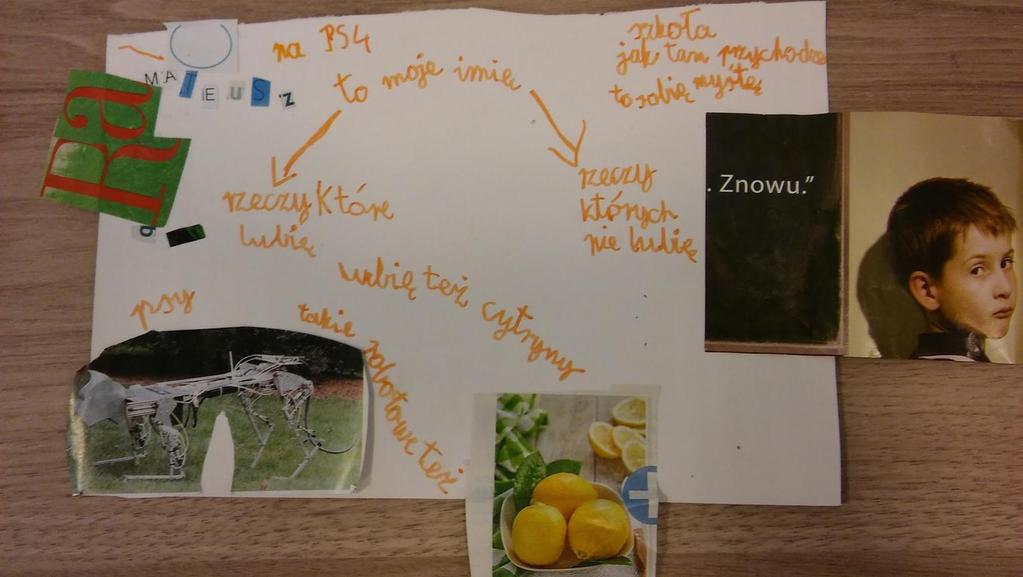 na PS4
MATEUSZ
to moje imię
szkoła
jak tam przychodzę
to sobię myślę
Ra
. Znowu."
rzeczy Które
lubię
rzeczy
których
nie lubię
lubię też cytryny
psy
takie robotowe też